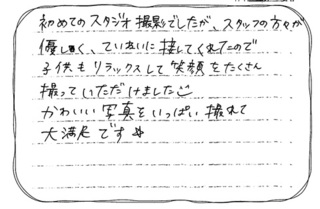 初めてのスタジオ撮影でしたが、スタッフの方々が
優しく、ていねいに接してくれたので
子供もリラックスして笑顔をたくさん
撮っていただけました
かわいい写真をいっぱい撮れて
大満足です☆